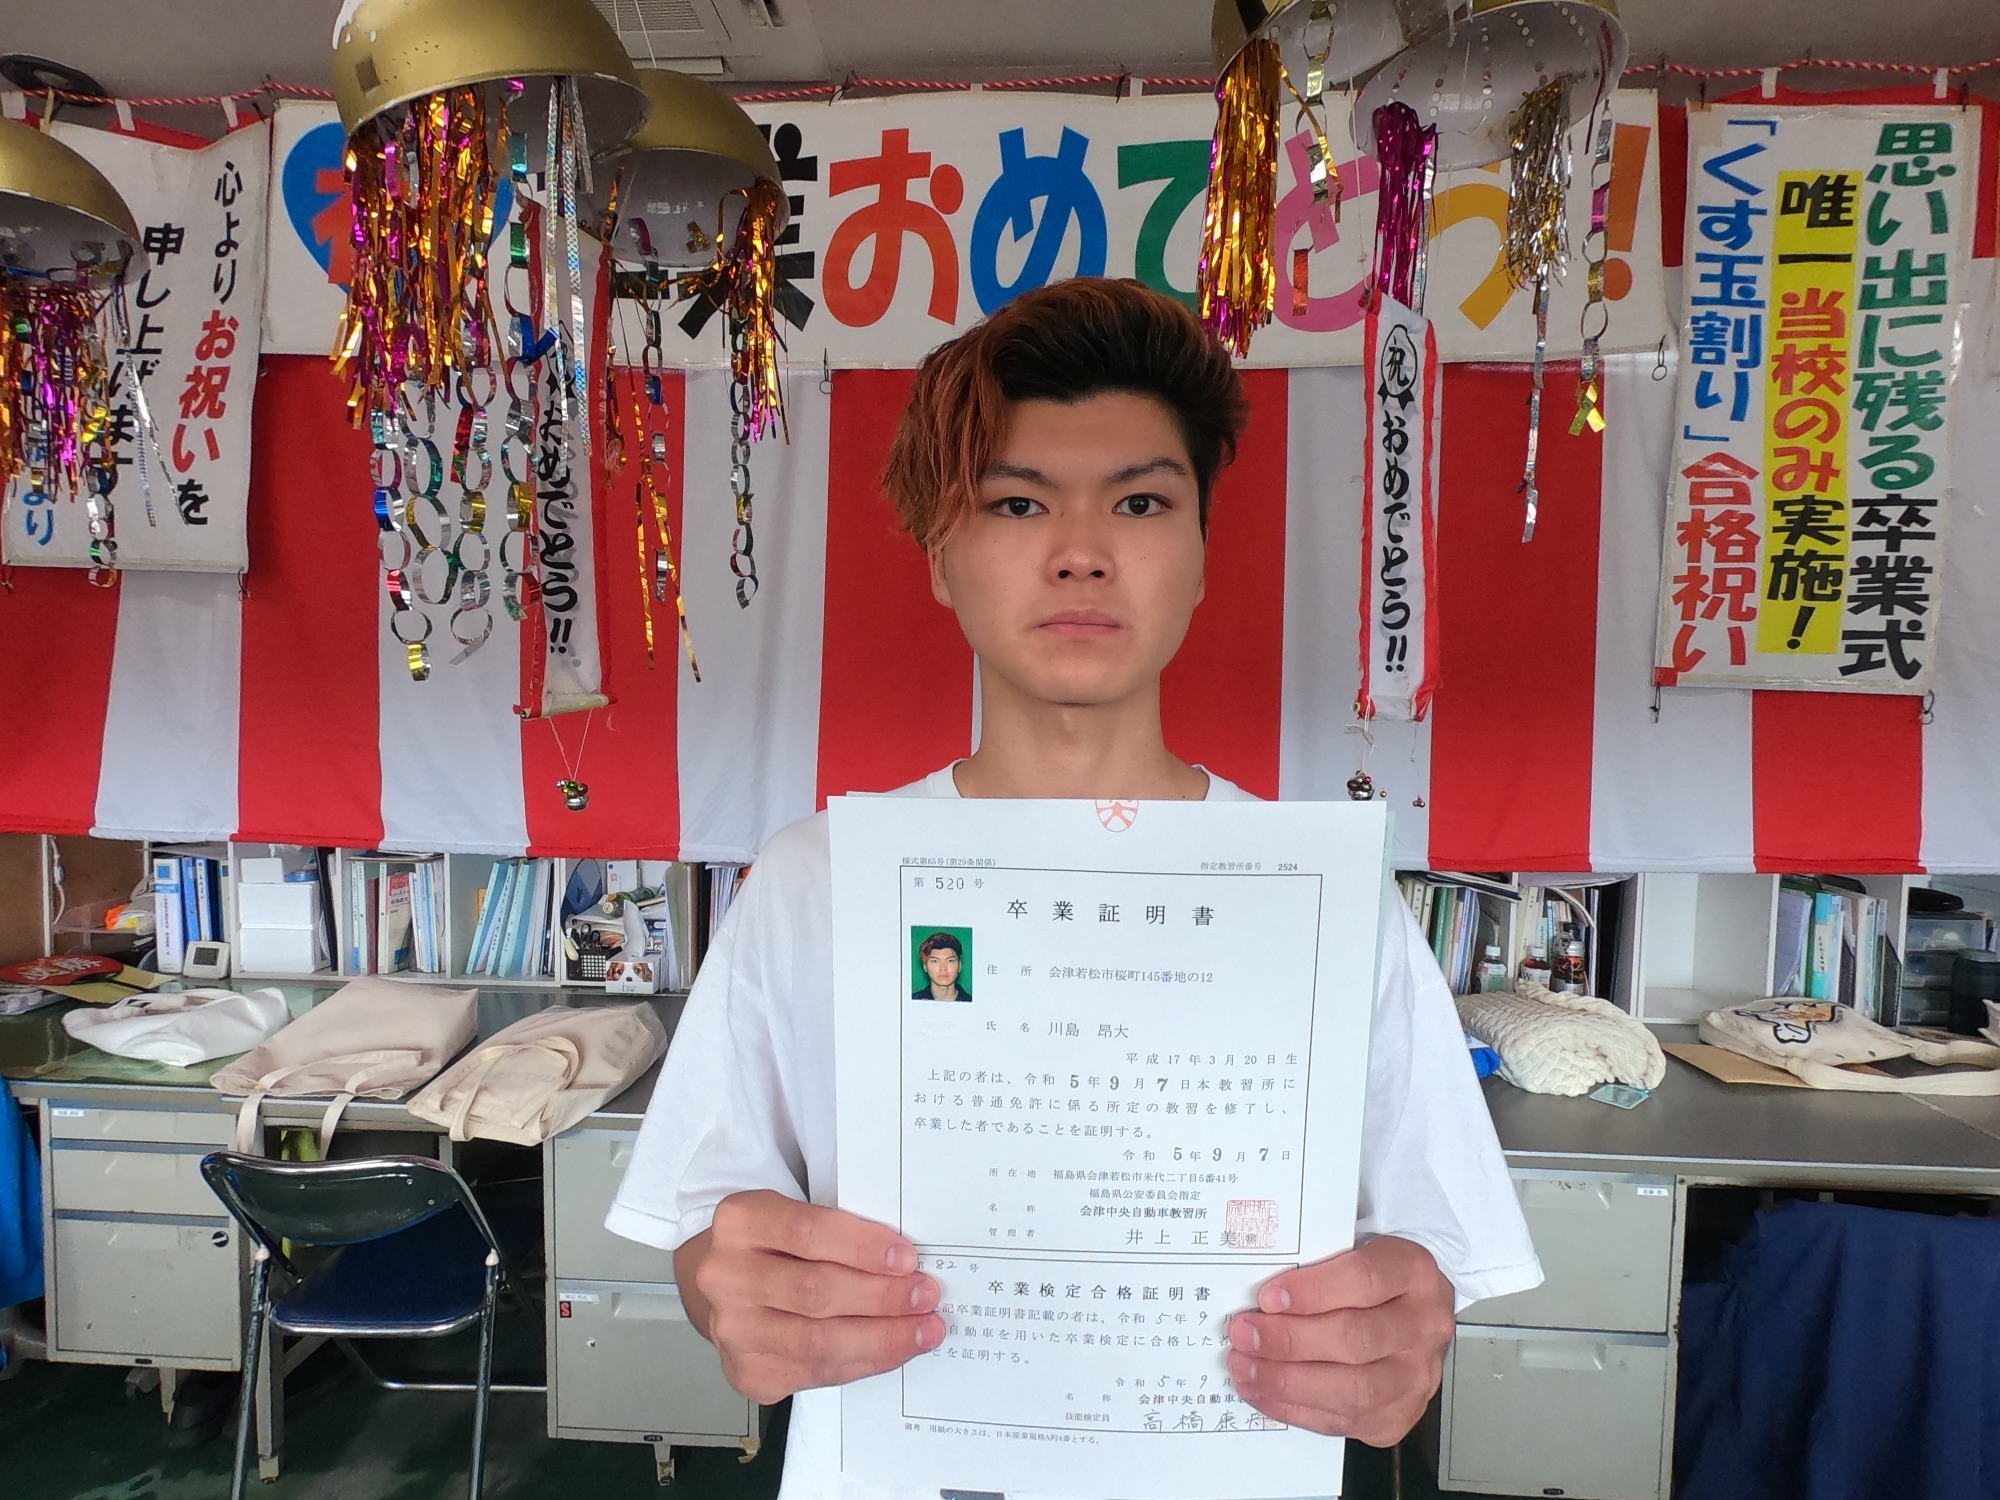 心より
お祝いを
申し上げます
より
業おめでとう!
祝 おめでとう!!
おめでとう!!
思い出に残る卒業式
唯一当校のみ実施!
「くす玉割り」合格祝い
様式第65号(第29条関係)
指定教習所番号 2524
第 520 号
卒業証明書
住所 会津若松市桜町145番地の12
氏名 川島 昂大
平成17年3月20日生
上記の者は、令和 5年 9月 7日本教習所に
おける普通免許に係る所定の教習を修了し、
卒業した者であることを証明する。
令和 5年 9月 7日
所在地 福島県会津若松市米代二丁目5番41号
福島県公安委員会指定
名称 会津中央自動車教習所
管理者 井上 正美
第 82 号
卒業検定合格証明書
上記卒業証明書記載の者は、令和 5年 9月
自動車を用いた卒業検定に合格した者
とを証明する。
令和 5年 9月
名称 会津中央自動車教
技能検定員 高橋 康
備考 用紙の大きさは、日本産業規格A列4番とする。